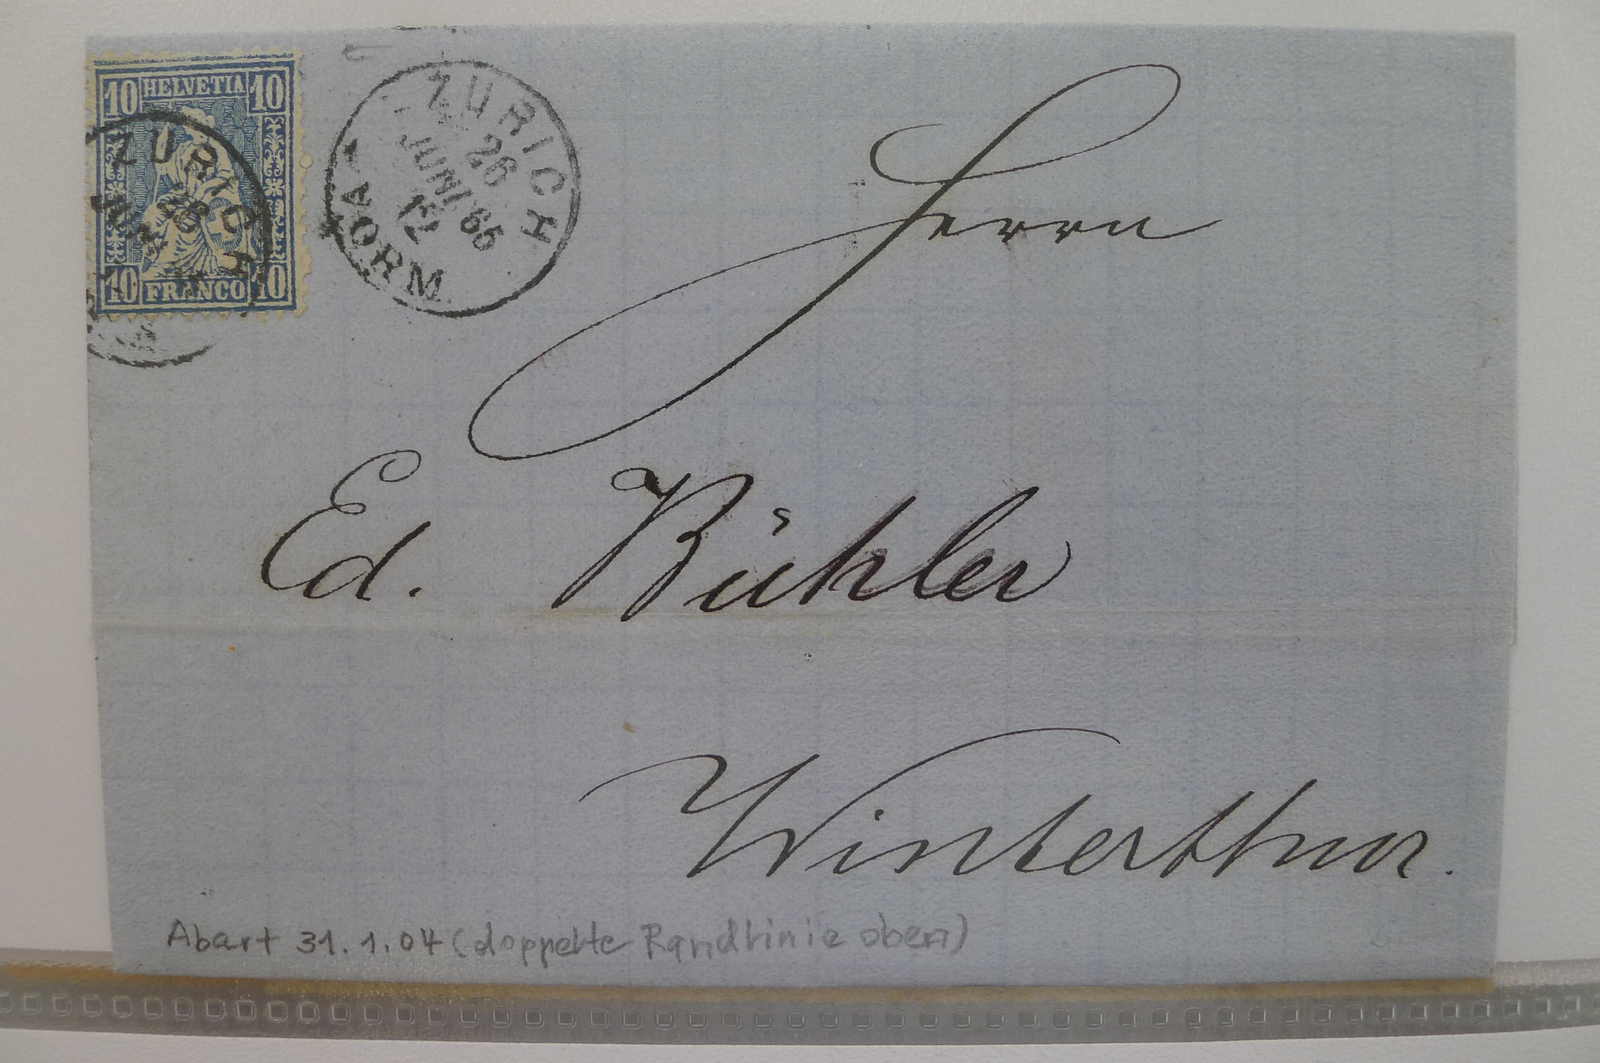 10 HELVETIA 10
10 FRANCO 10
ZURICH
ZURICH
26
JUNI 65
12
VORM
Herrn
Ed. Bühler
Winterthur.
Abart 31.1.04 (doppelte Randlinie oben)